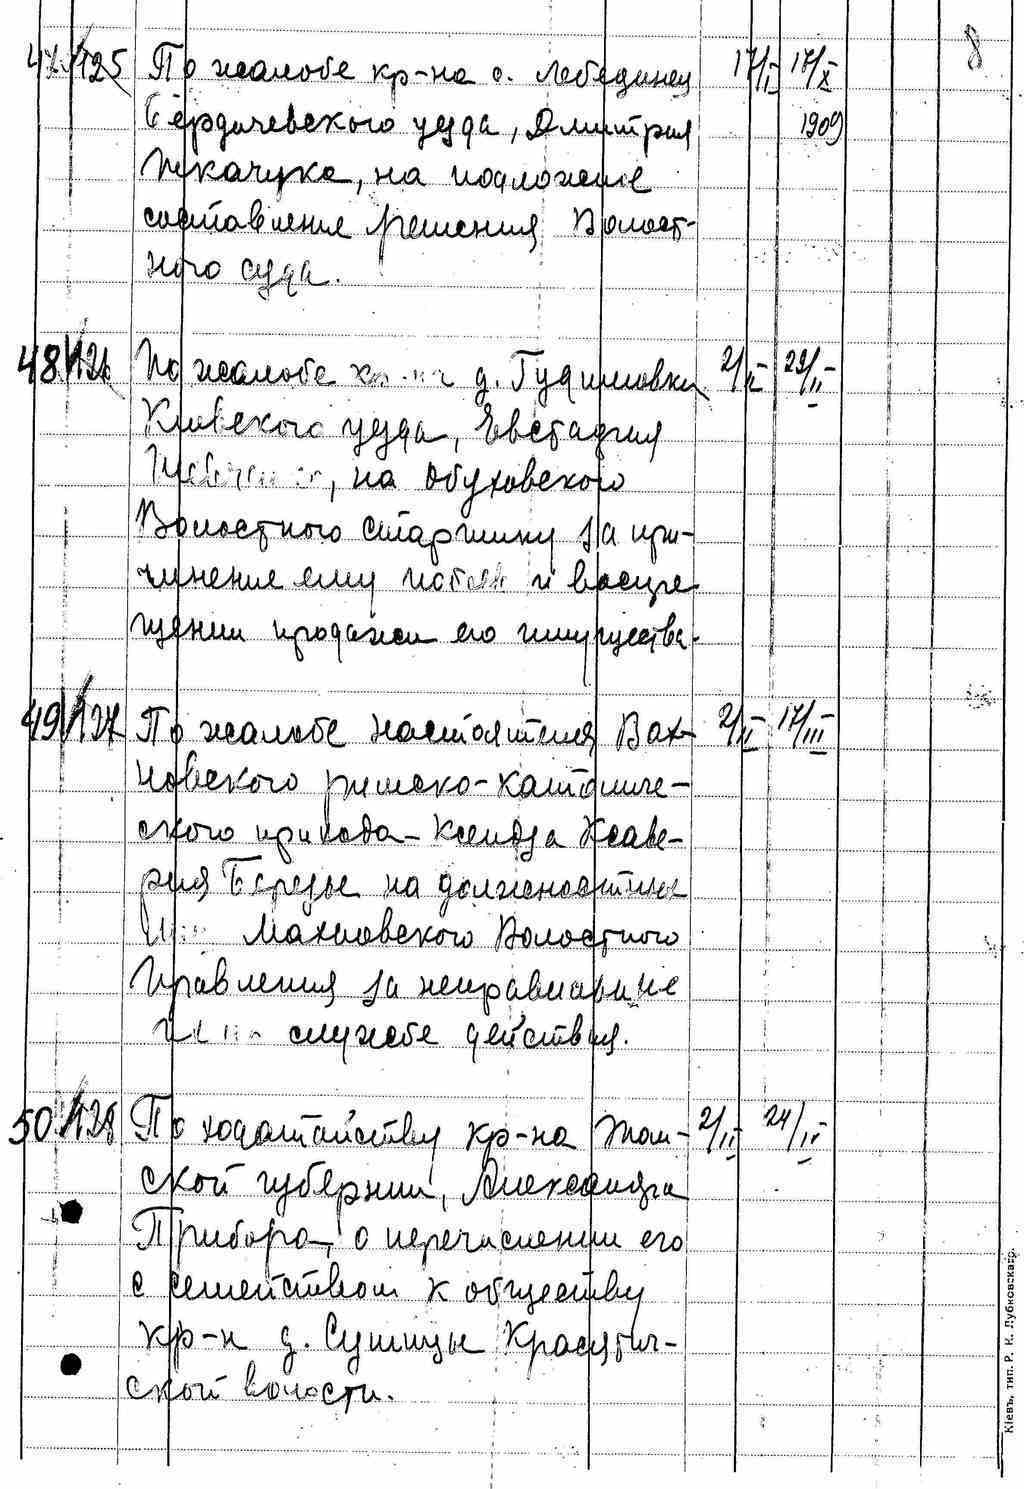 8
47 125 По жалобе кр-на с. Лебединец 17/I 17/X
Бердичевского уезда, Дмитрия 1909
Ткачука, на подложение
составление решения Волост-
ного суда.
48 126 По жалобе кр-на д. Гудимовки 2/II 29/II
Киевского уезда, Евстафия
на Обуховского
Волостного старшину за при-
чинение ему побоев и воспре
щении продажи его имущества.
49 127 По жалобе настоятеля Вах- 2/II 17/III
новского римско-католиче-
ского прихода - Ксендза Ксаве-
рия Березы на должностных
лиц Махновского Волостного
Правления за неправильные
по службе действия.
50 128 По ходатайству кр-на Том- 2/II 24/II
ской губернии, Александра
Прибора, о перечислении его
с семейством к обществу
кр-н д. Сушицы Красятич-
ской волости.
Кіевъ, тип. Р. К. Лубковскаго.